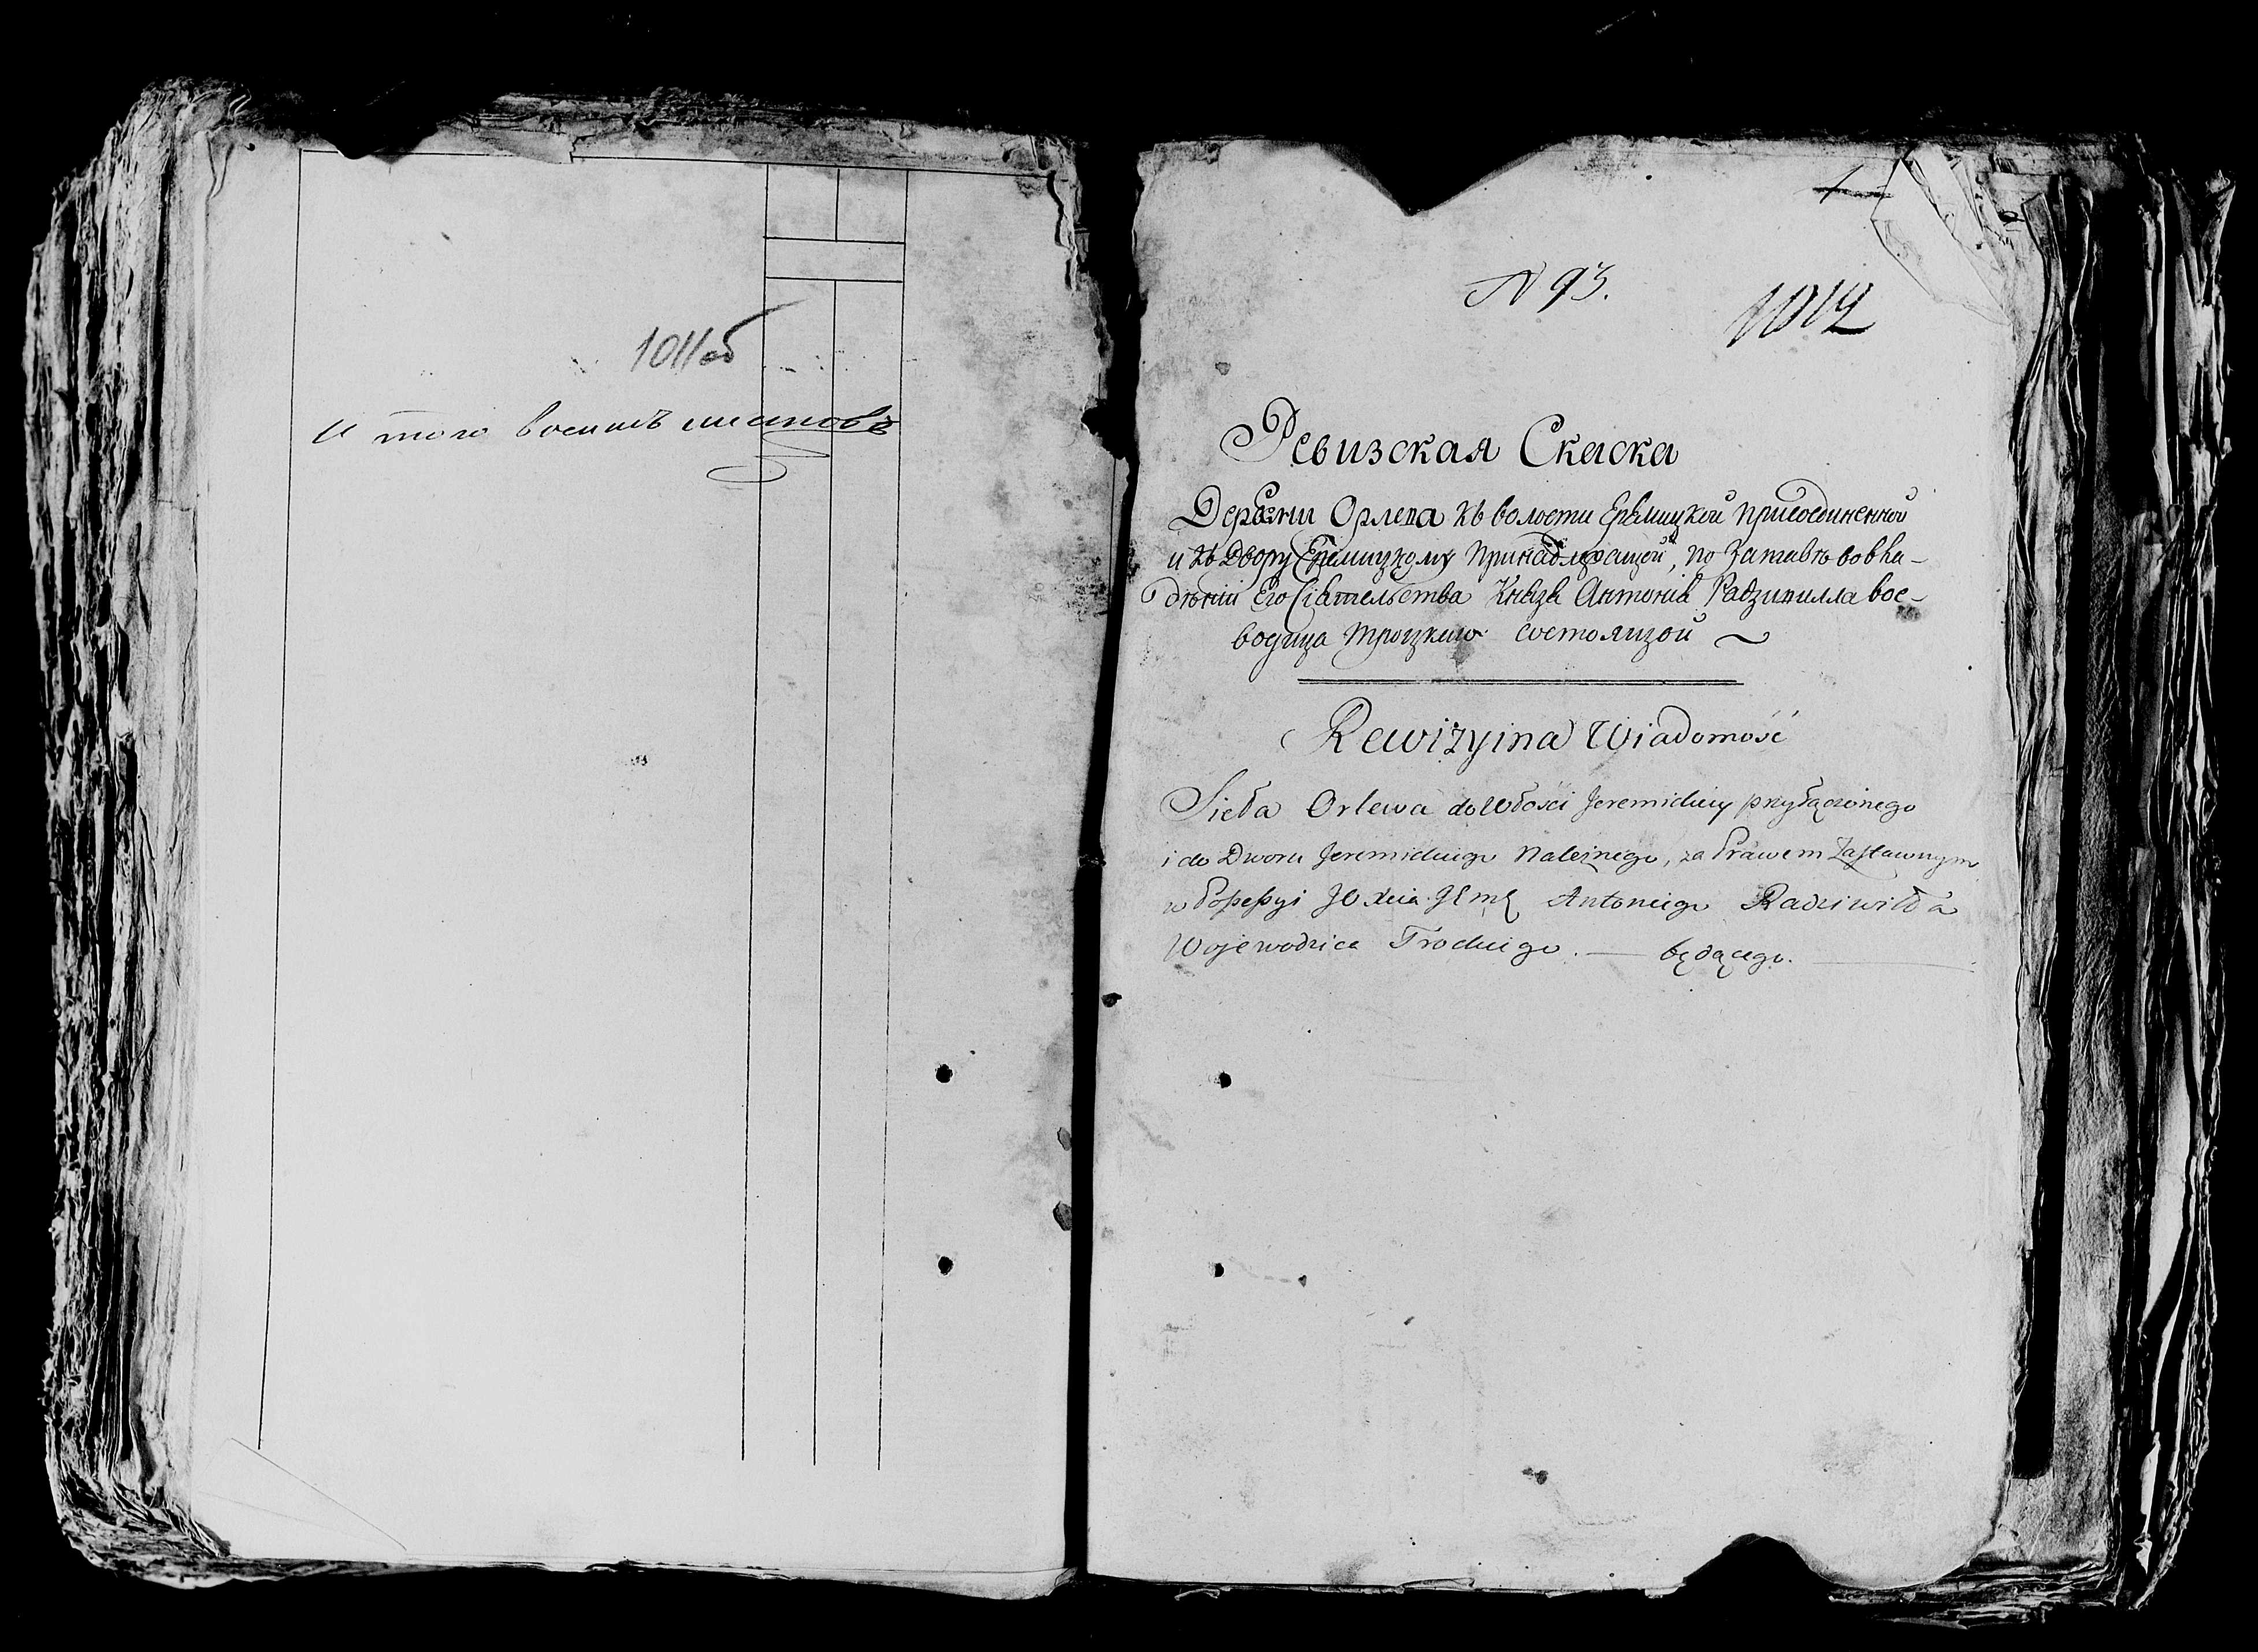 1011об
И того восемь листовъ
N 93.
1012
Ревизская Скаска
Деревни Орлева къ волости Еремицкой присоединенной
и къ Двору Еремицкому принадлежащой, по Заставѣ во вла-
дѣнии Его Сіятельства Князя Антонія Радзивилла вое-
водица Троцкаго состоящой
Rewizyina Wiadomość
Sieła Orlewa do Włości Jeremickiey przyłączonego
i do Dworu Jeremickiego Należnego, za Prawem Zastawnym
w Possessyi JO Xcia Antoniego Radziwiłła
Wojewodzica Trockiego. — będącego.